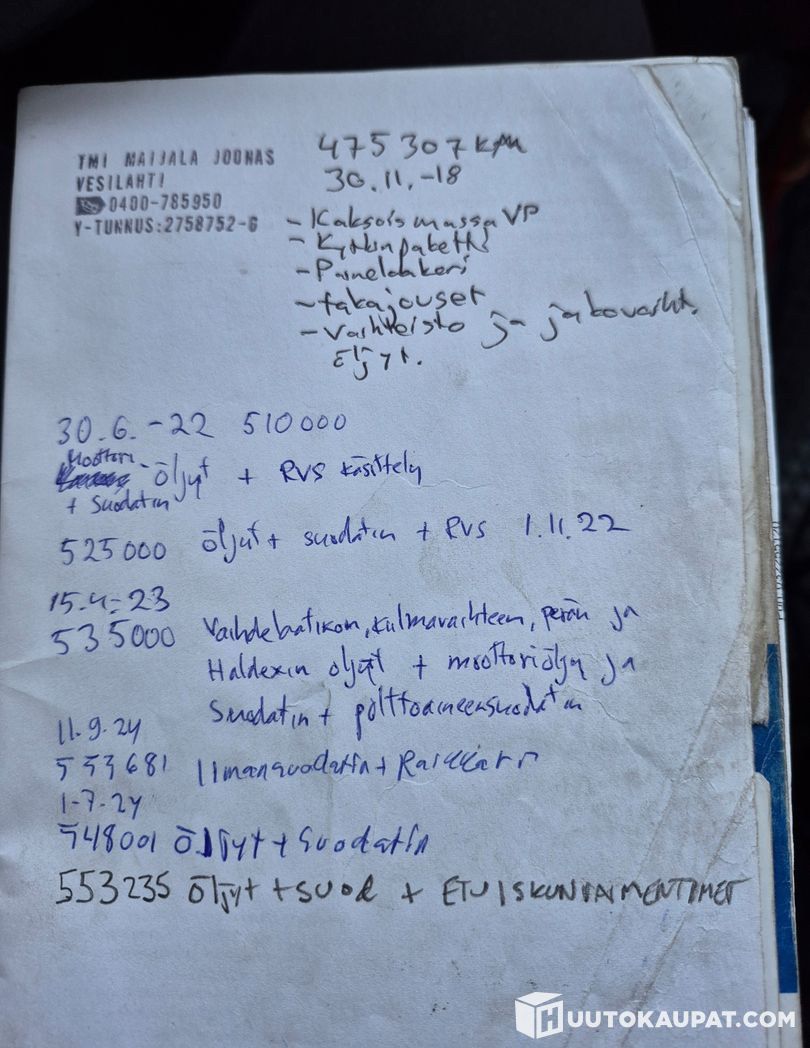 TMI MAIJALA JOONAS
VESILAHTI
0400-785950
Y-TUNNUS:2758752-6
475307 KM
30.11.-18
- Kaksoismassa VP
- Kytkinpaketti
- Painelaakeri
- takajouset
- Vaihteisto ja jakovaiht.
Öljyt.
30.6.-22 510000
Moottori-
öljyt + RVS käsittely
+ Suodatin
525000 öljyt + suodatin + RVS 1.11.22
15.4.-23
535000 Vaihdelaatikon, kulmavaihteen, perän ja
Haldexin öljyt + moottoriöljy ja
Suodatin + polttoaineensuodatin
11.9.24
553681 Ilmansuodatin + Raikkari
1.7.24
548001 Öljyt + Suodatin
553235 Öljyt + suod + ETUISKUNVAIMENTIMET
HUUTOKAUPAT.COM